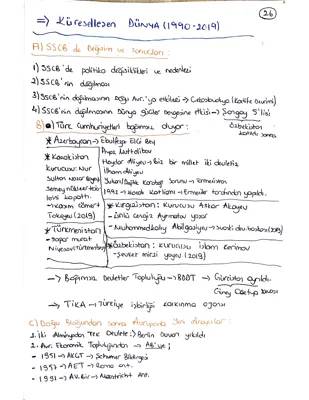 26
=> Küreselleşen DÜNYA (1990-2019)
A) SSCB'de Değişim ve Sonuçları:
1) SSCB'de politika değişiklikleri ve nedenleri
2) SSCB'nin dağılması
3) SSCB'nin dağılmasının Doğu Avr.'ya etkileri → Çekoslovakya (Kadife Devrimi)
4) SSCB'nin dağılmasının Dünya güçler dengesine etkisi → Şangay 5'lisi
Özbekistan katıldı sonra
B) a) Türk Cumhuriyetleri bağımsız oluyor:
* Azerbaycan → Ebulfeyz Elçi Bey
* Kazakistan
Kurucusu: Nur Sultan Nazarbayev
Semey nükleer testleri kapattı.
→ Kasım Cömert Tokayev (2019)
* Türkmenistan
→ Sapar murat Niyazov (türkmenbaşı)
Ayaz Muttalibov
Haydar Aliyev → Biz bir millet iki devletiz
İlham Aliyev
Yukarı/Dağlık Karabağ Sorunu → Ermenistan
1992 → Hocalı Katliamı → Ermeniler tarafından yapıldı.
* Kırgızistan: Kurucusu Askar Akayev
→ Ünlü Cengiz Aytmatov yazar
→ Muhammedkalıy Abılgaziyev →
* Özbekistan: Kurucusu İslam Kerimov
→ Şevket mirzi yoyev (2019)
→ Bağımsız Devletler Topluluğu → BDT → Gürcistan ayrıldı.
Güney Osetya
→ TİKA → Türkiye işbirliği kalkınma ajansı
C) Doğu Bloğundan sonra Avrupada Yeni Arayışlar:
1. İki Almanyadan Tek Devlete: → Berlin Duvarı yıkıldı
2. Avr. Ekonomik Topluluğundan → AB'ye;
- 1951 → AKÇT → Schuman Bildirgesi
- 1957 → AET → Roma ant.
- 1991 → AV. Bir → Maastricht Ant.